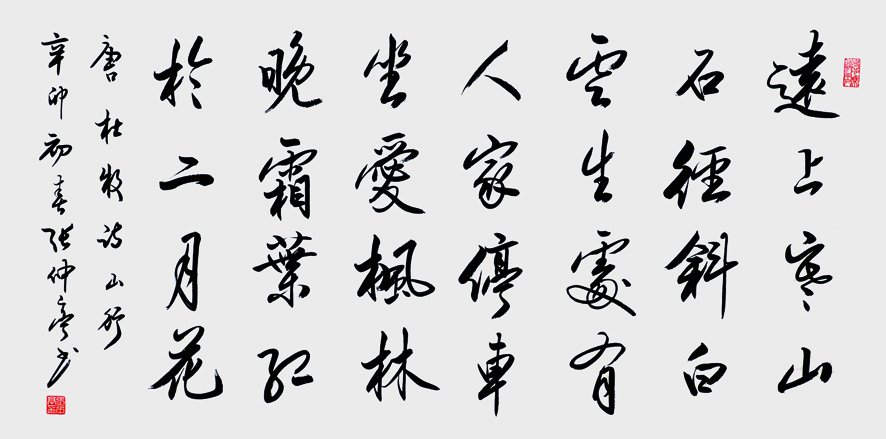 遠上寒山
石徑斜白
雲生處有
人家停車
坐愛楓林
晚霜葉紅
於二月花
唐杜牧詩山行
辛卯初春張仲亭书